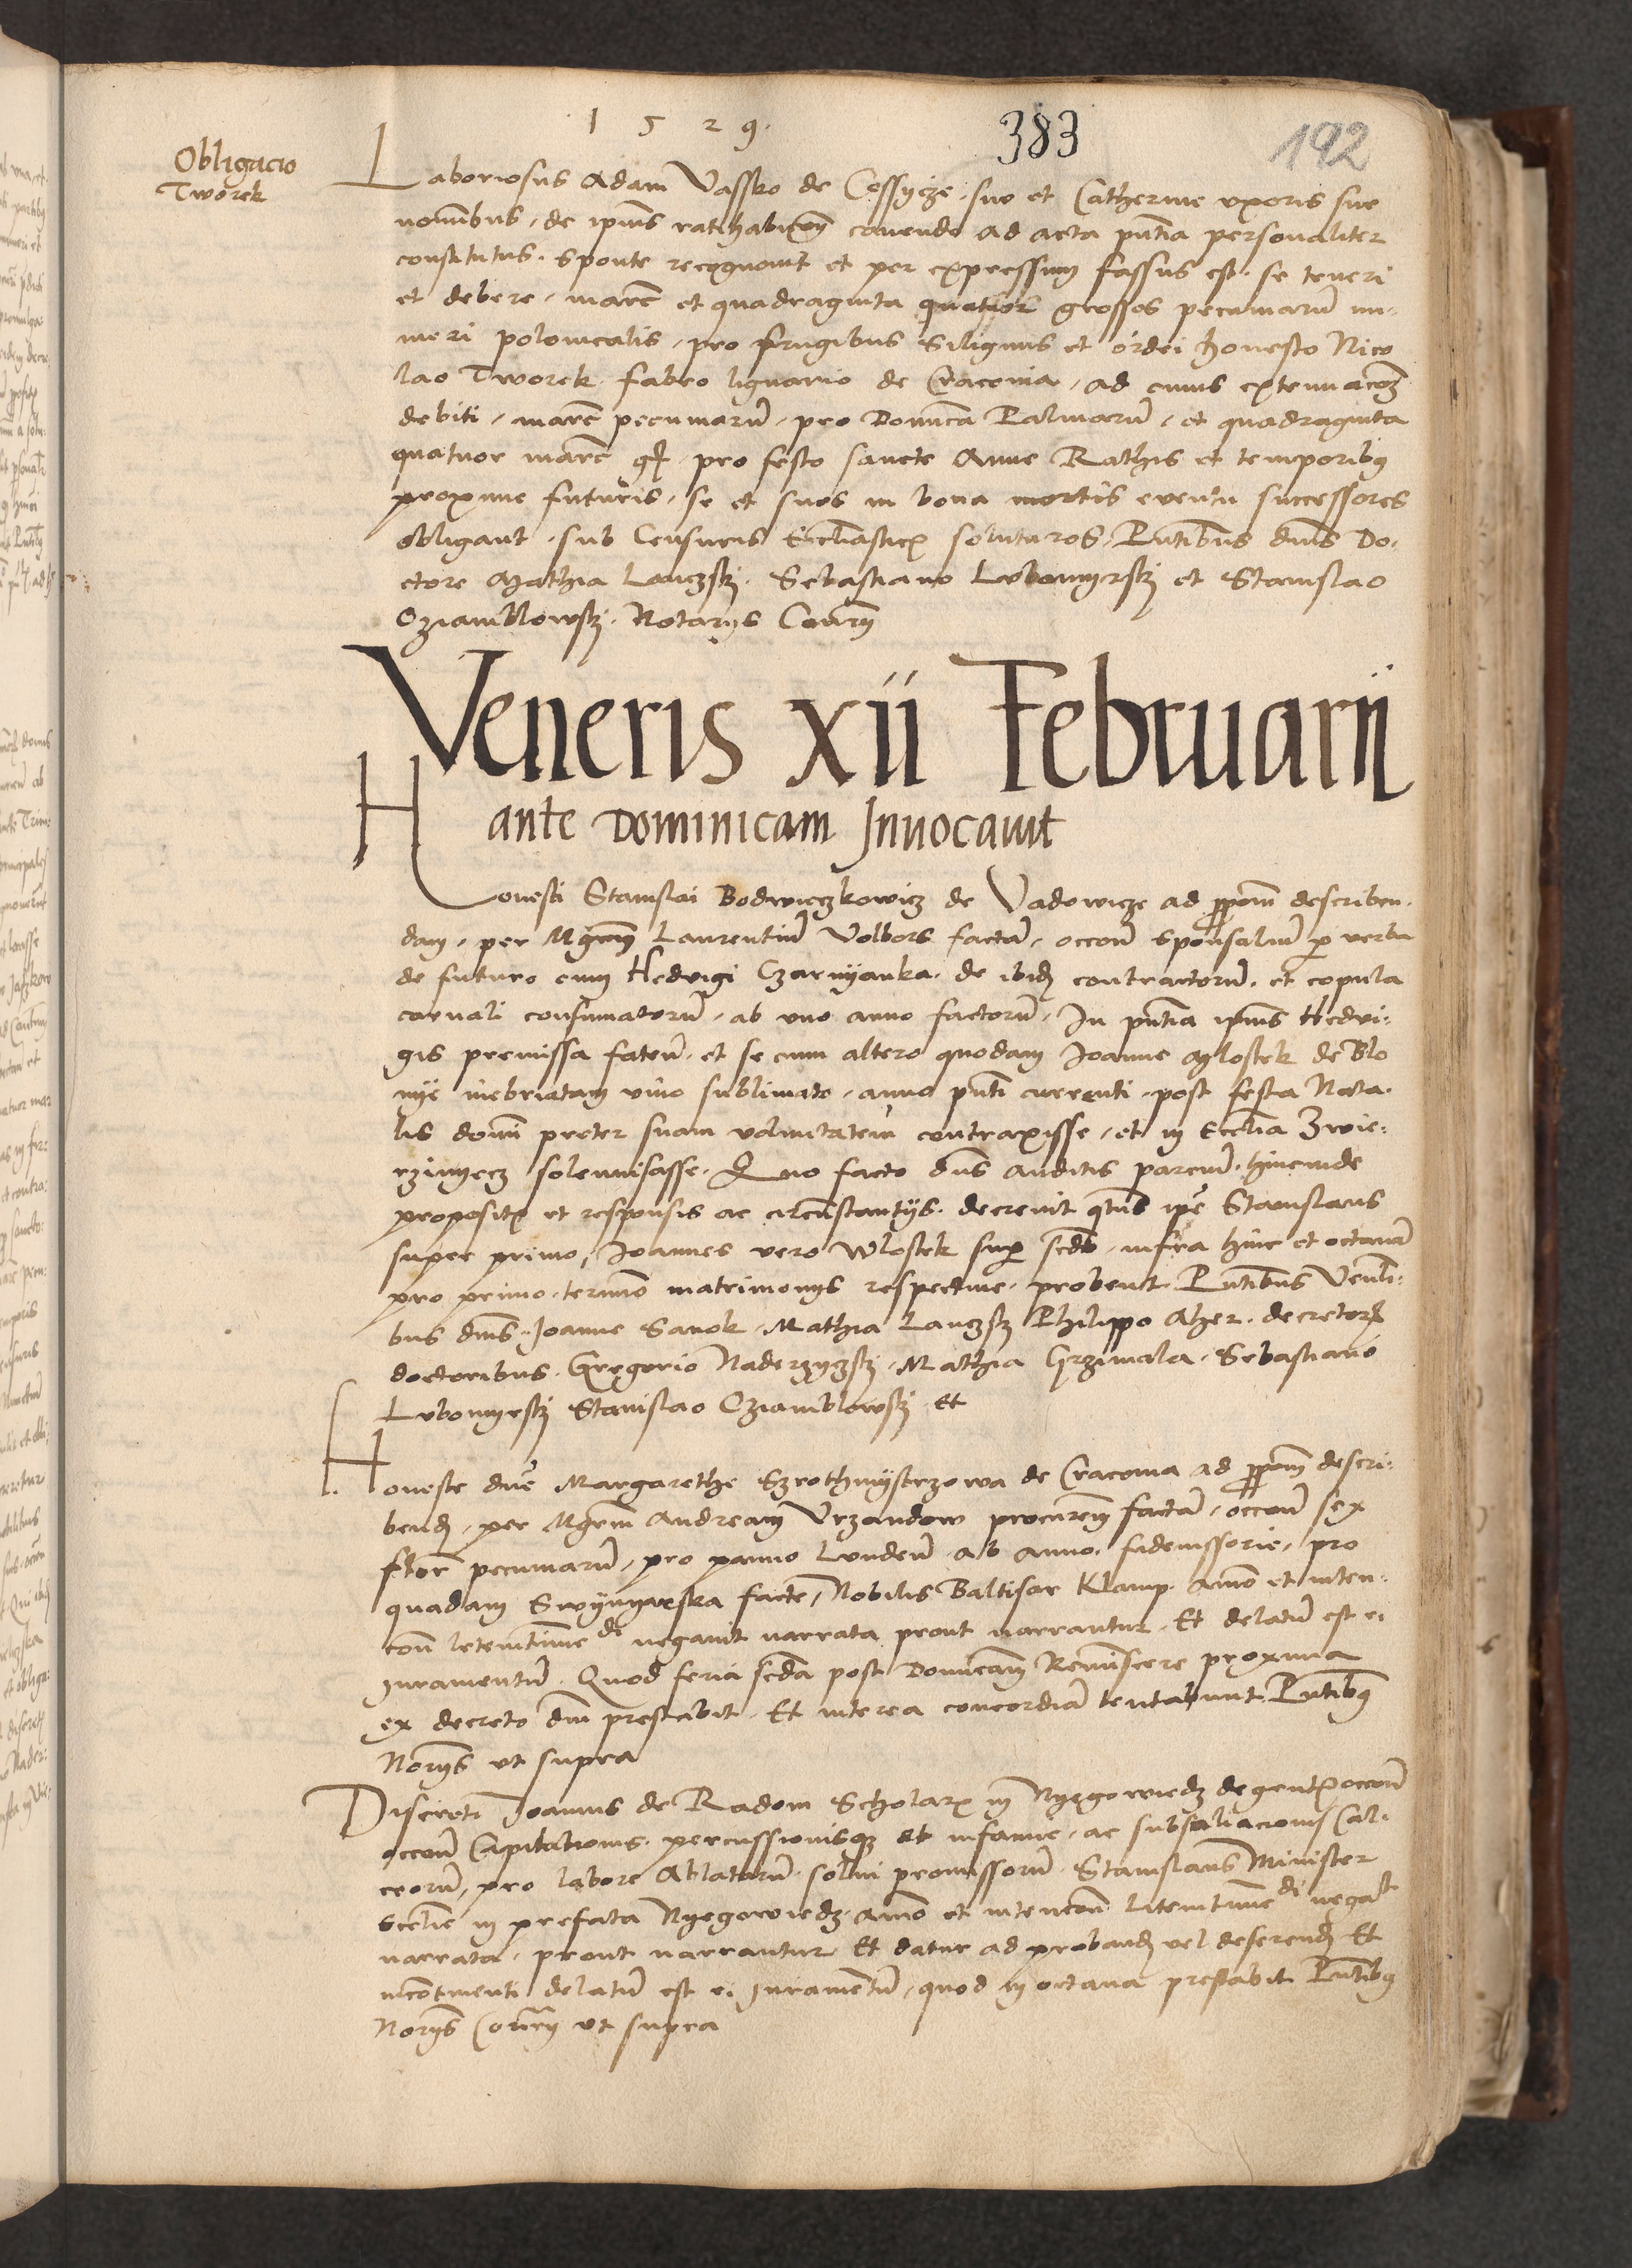 1529.
383
192
Obligacio
Tworek
Laboriosus Adam Vassko de Cossycze suo et Catherine uxoris sue
nominibus, de ipsius ratihabicione cavendo ad acta pntia personaliter
constitutus. sponte recognovit et per expressum fassus est. se teneri
et debere, marc et quadraginta quatuor grossos pecuniarum nu-
meri polonicalis, pro frugibus Siliginis et ordei honesto Nico
lao Tworek fabro lignario de Cracovia, ad cuius extenuacoem
debiti, marc pecuniarum, pro Dominica Palmarum, et quadraginta
quatuor marc gr pro festo sancte Anne Rathis et temporibus
proxime futuris, se et suos in bona mortis eventu successores
obligavit, sub Censuris Ecclesiasticis soluturos, Pntibus dnis Do-
ctore Mathia Lanczski. Sebastiano Lubomyrski et Stanislao
Cziamblowski. Notariis Coram
Veneris xii Februarii
ante Dominicam Invocavit
Honesti Stanislai Bodwieczkowicz de Vadowicze ad proponem describen-
dam, per Mgrum Laurentium Volbors factam, occone sponsalium per verba
de futuro cum Hedvigi Czarnyanka de ibidem contractorum. et copula
carnali consumatorum, ab uno anno factorum, In pntia ipsius Hedvi-
gis premissa faten. et se cum altero quodam Joanne Wlostek de Blo
nye inebriatam vino sublimato, anno pnti currenti, post festa Nata-
lis domini preter suam voluntatem contraxisse, et in Ecclesia Zwie-
rzinyecz solennisasse. Quo facto dns auditis parcium hincinde
propositis et responsis ac circumstantiis. decrevit qtnus ipse Stanislaus
super primo, Joannes vero Wlostek super secundo, infra hinc et octavam
pro primo termino matrimoniis respective probent. Pntibus Venli-
bus dnis Joanne Sanok, Mathia Lanczski Philippo Aher. decretorum
doctoribus. Gregorio Naderzyczski, Mathia Grzimala, Sebastiano
Lubomyrski Stanislao Cziamblowski Et
Honeste dne Margarethe Szrothmystrzowa de Cracovia ad proponem descri-
bend, per Mgrum Andream Urzandow procurem factam, occone sex
flor pecuniarum, pro panno Lunden. ab anno. fideiussorie, pro
quadam Swyynyarska facte, Nobilis Baltisar Klamp. animo et inten-
cone litemtime di negavit narrata prout narrantur, Et delatum est ei
iuramentum. Quod feria secda post Dominicam Reminiscere proxima
ex decreto dni prestabit, Et interea concordiam tentabunt. Pntibus
Noriis ut supra
Discreti Joannis de Radom Scholaris in Nyegowiedz degentis occone
occone Capitationis. percussionisque et infamie, ac subsaliacionis Cal-
ceorum, pro labore Ablatorum. solvi promissorum. Stanislaus Minister
scole in prefata Nyegowiedz. animo et intencone Litemtime di negat
narrata, prout narrantur Et datur ad proband vel deferend Et
incontinenti delatum est ei iuramentum, quod in octava prestabit Pntibus
Noriis Coram ut supra